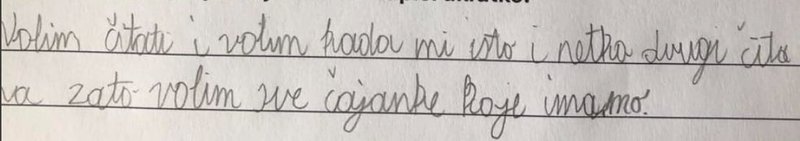 Volim čitati i volim kada mi isto i netko drugi čita
pa zato volim sve čajanke koje imamo.